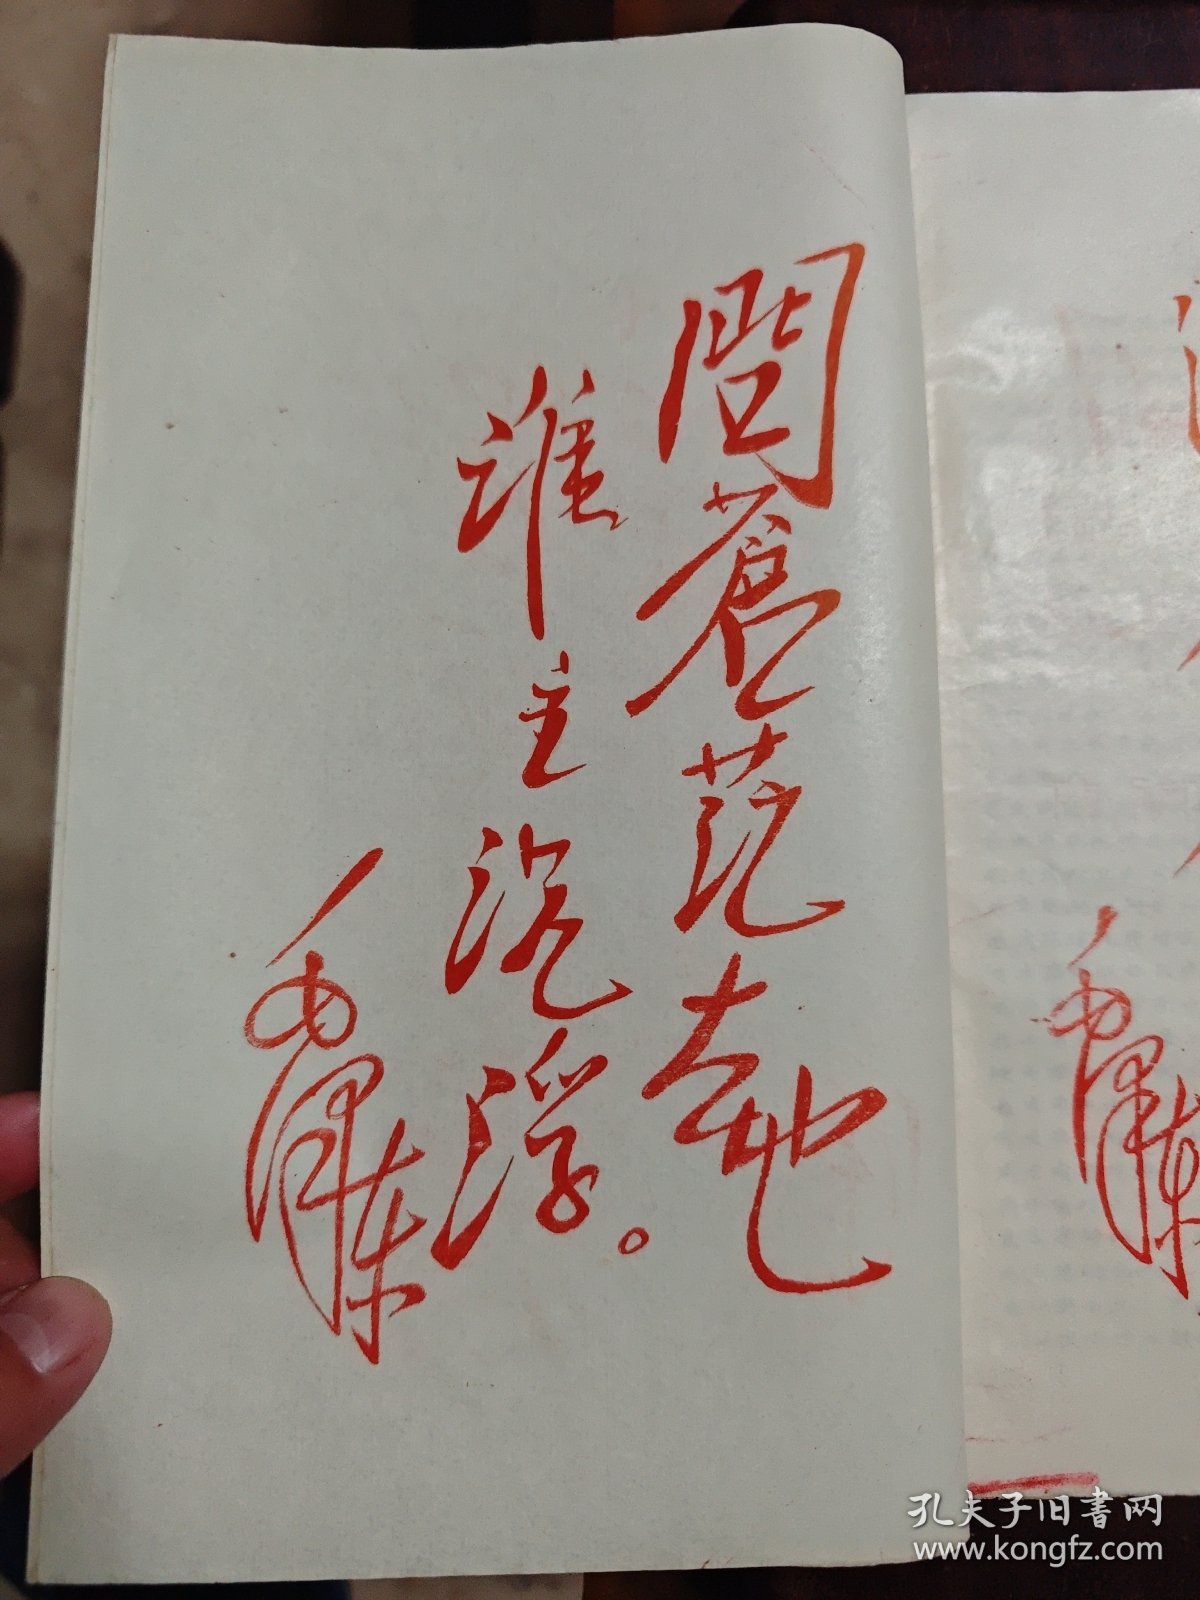 问苍茫大地
谁主沉浮。
毛泽东
毛泽东
孔夫子旧书网
www.kongfz.com